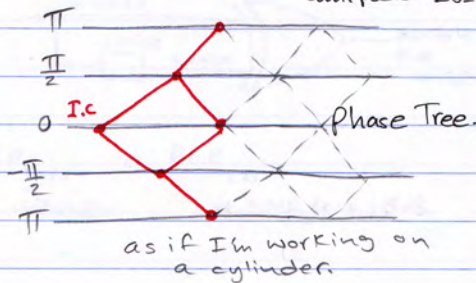 π
π/2
I.C
0
Phase Tree.
-π/2
π
as if I'm working on
a cylinder.